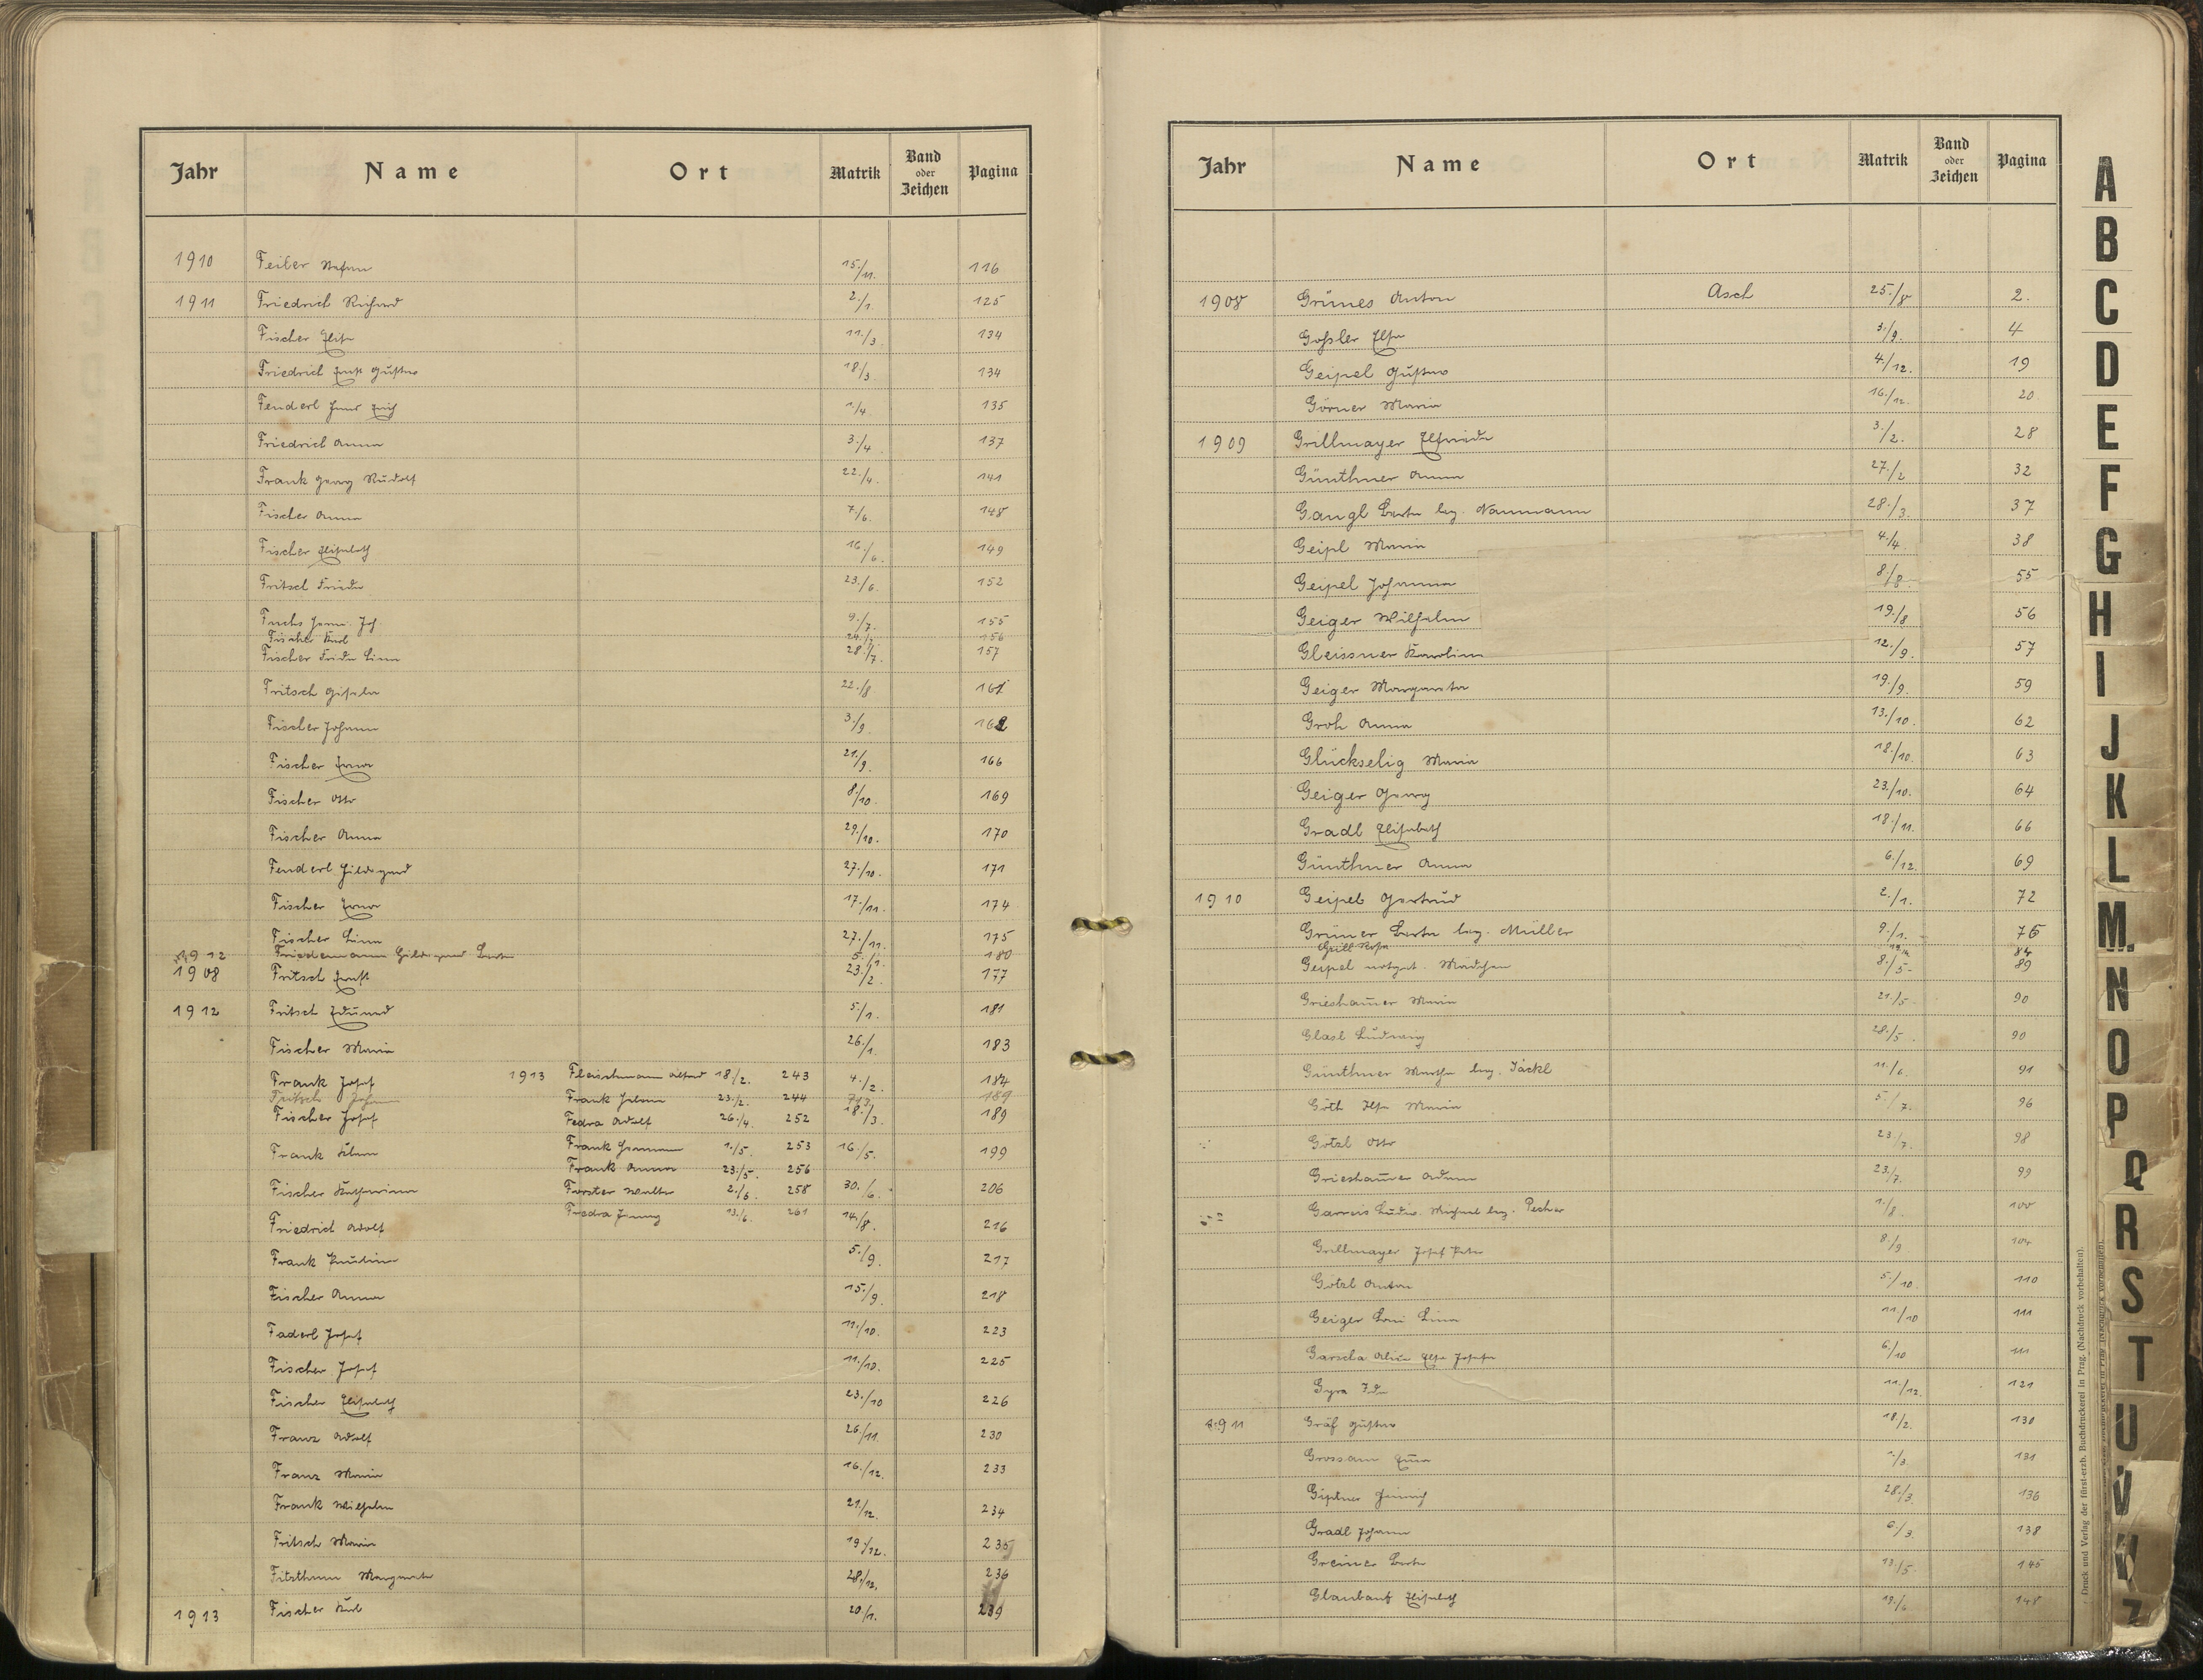 Jahr Name Ort Matrik Band oder Zeichen Pagina
1910 Feiler Stefan 15./11. 116
1911 Friedrich Richard 2./1. 125
Fischer Elise 11./3. 134
Friedrich Ernst Gustav 18./3. 134
Fenderl Hans Erich 1./4. 135
Friedrich Anna 3./4. 137
Frank Georg Rudolf 22./4. 141
Fischer Anna 7./6. 148
Fischer Elisabeth 16./6. 149
Fritsch Frieda 23./6. 152
Fuchs Herm. Joh. 9./7. 155
Fischer Karl 24./7. 156
Fischer Frieda Lina 28./7. 157
Fritsch Gisela 22./8 161
Fischer Johann 3./9. 162
Fischer Erna 21./9. 166
Fischer Otto 8./10. 169
Fischer Anna 29./10. 170
Fenderl Hildegard 27./10. 171
Fischer Erna 17./11. 174
Fischer Lina 27./11. 175
1912 Friedemann Hildegard Berta 5./1. 180
1908 Fritsch Ernst 23./2. 177
1912 Fritsch Eduard 5./1. 181
Fischer Maria 26./1. 183
Frank Josef 4./2. 184
1913 Fleischmann Alfred 18./2. 243
Fritsch Johann 189
Frank Johann 23./2. 244
Fischer Josef 18./3. 189
Fedra Adolf 26./4. 252
Frank Hermann 1./5. 253
Frank Klara 16./5. 199
Frank Anna 23./5. 256
Fischer Katharina 30./6. 206
Forster Walter 2./6. 258
Fedra Jenny 13./6. 261
Friedrich Adolf 14./8. 216
Frank Paulina 5./9. 217
Fischer Anna 15./9. 218
Faderl Josef 11./10. 223
Fischer Josef 11./10. 225
Fischer Elisabeth 23./10 226
Franz Adolf 26./11. 230
Franz Maria 16./12. 233
Frank Wilhelm 21./12. 234
Fritsch Maria 19./12. 235
Fitzthum Margareta 28./12. 236
1913 Fischer Karl 20./1. 239
Jahr Name Ort Matrik Band oder Zeichen Pagina
1908 Grünes Anton Asch 25./8 2.
Goßler Elsa 3./9. 4
Geipel Gustav 4./12. 19
Görner Maria 16./12. 20.
1909 Grillmayer Elfrieda 3./2. 28
Günthner Anna 27./2 32
Gangl Berta leg. Naumann 28./3. 37
Geipl Maria 4./4. 38
Geipel Johanna 8./8. 55
Geiger Wilhelm 19./8 56
Gleissner Karolina 12./9. 57
Geiger Margareta 19./9. 59
Groh Anna 13./10. 62
Glückselig Maria 18./10. 63
Geiger Georg 23./10. 64
Gradl Elisabeth 18./11. 66
Günthner Anna 6./12. 69
1910 Geipel Gertrud 2./1. 72
Grüner Berta leg. Müller 9./1. 76
Grill Rosa 84
Geipel notget. Mädchen 8./5. 89
Grieshauer Maria 21./5. 90
Glasl Ludwig 28./5. 90
Günthner Martha leg. Jäckl 11./6. 91
Göth Ilse Maria 5./7. 96
Götzl Otto 23./7. 98
Grieshauer Adam 23./7. 99
Garreis Ludw. Michael leg. Pecher 1./8. 100
Grillmayer Josef Peter 8./9 104
Götzl Anton 5./10. 110
Geiger Loni Lina 11./10 111
Garscha Alice Elsa Josefa 6./10 111
Gyra Ida 11./12. 121
1911 Gräf Gustav 18./2. 130
Grossam Emma 1./3. 131
Giptner Heinrich 28./3. 136
Gradl Johann 6./3. 138
Greiner Berta 13./5. 145
Glaubauf Elisabeth 13./6 148
A
B
C
D
E
F
G
H
I
J
K
L
M.
N
O
P
Q
R
S
T
U
V
W
Z
Druck und Verlag der fürst-erzb. Buchdruckerei in Prag. (Nachdruck vorbehalten).